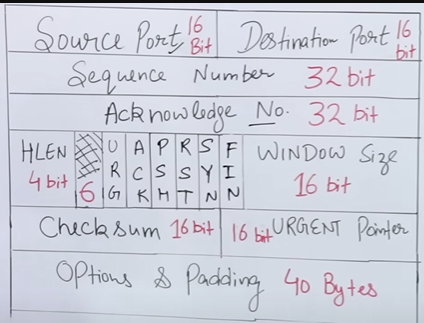 Source Port 16 Bit
Destination Port 16 bit
Sequence Number 32 bit
Acknowledge No. 32 bit
HLEN 4 bit 6 URG ACK PSH RST SYN FIN WINDOW Size 16 bit
Checksum 16 bit 16 bit URGENT Pointer
Options & Padding 40 Bytes